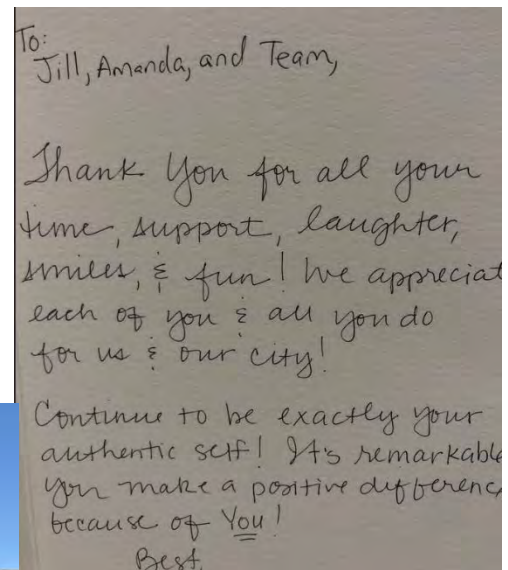 To:
Jill, Amanda, and Team,
Thank You for all your
time, support, laughter,
smiles, & fun! We appreciat
each of you & all you do
for us & our city!
Continue to be exactly your
authentic self! It's remarkable
you make a positive differenc
because of You!
Best,